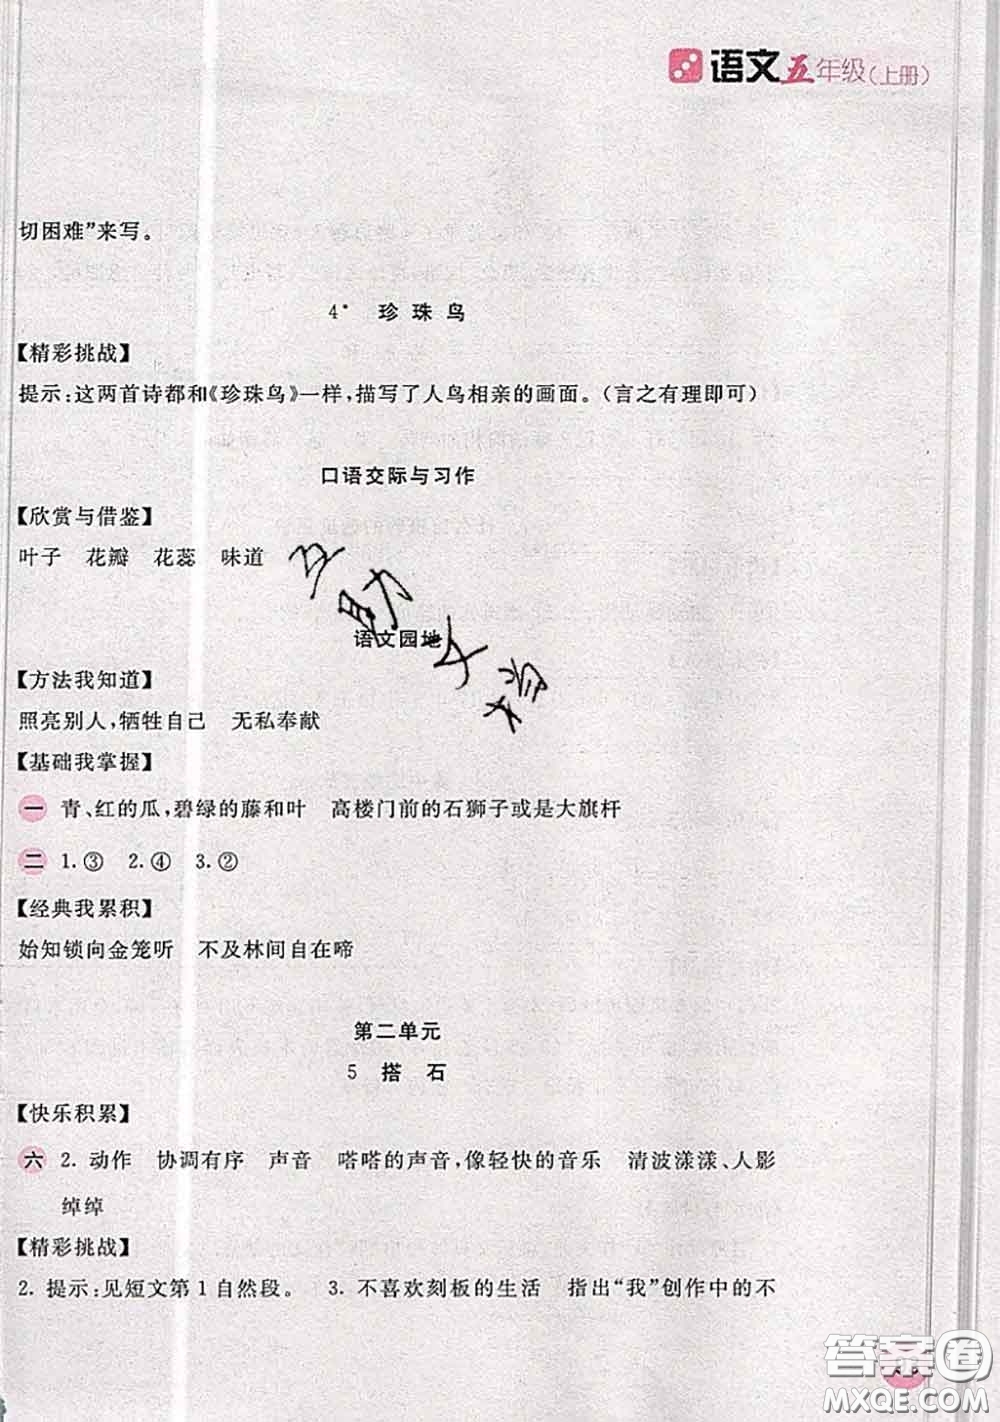 语文五年级（上册）
切困难”来写。
4* 珍珠鸟
【精彩挑战】
提示:这两首诗都和《珍珠鸟》一样,描写了人鸟相亲的画面。(言之有理即可)
口语交际与习作
【欣赏与借鉴】
叶子 花瓣 花蕊 味道
语文园地
【方法我知道】
照亮别人,牺牲自己 无私奉献
【基础我掌握】
一 青、红的瓜,碧绿的藤和叶 高楼门前的石狮子或是大旗杆
二 1.③ 2.④ 3.②
【经典我累积】
始知锁向金笼听 不及林间自在啼
第二单元
5 搭石
【快乐积累】
六 2. 动作 协调有序 声音 嗒嗒的声音,像轻快的音乐 清波漾漾、人影
绰绰
【精彩挑战】
2. 提示:见短文第1自然段。 3. 不喜欢刻板的生活 指出“我”创作中的不
答案圈
MXQE.COM